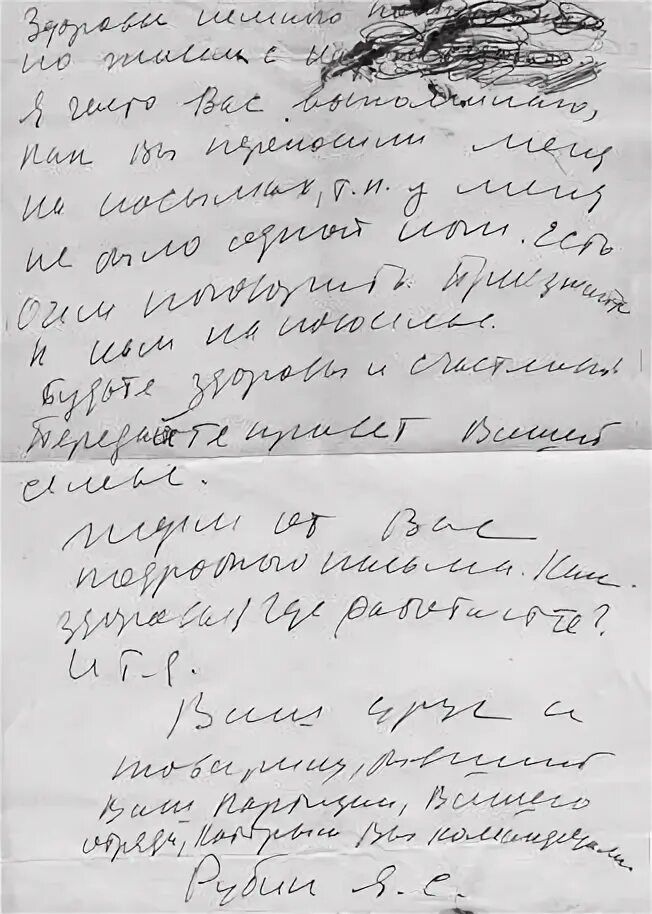 Здоровье немного
но жизнь с
Я часто Вас вспоминаю,
как Вы переносили меня
на носилках, т.к. у меня
не было одной ноги. Есть
о чем поговорить. Приезжайте
к нам на новоселье.
Будьте здоровы и счастливы
Передайте привет Вашей
семье.
Ждем от Вас
подробного письма. Как
здоровье? Где работаете?
И т.д.
Ваш друг и
товарищ, бывший
Ваш партизан, Вашего
отряда, которым Вы командовали.
Рубин Я. С.